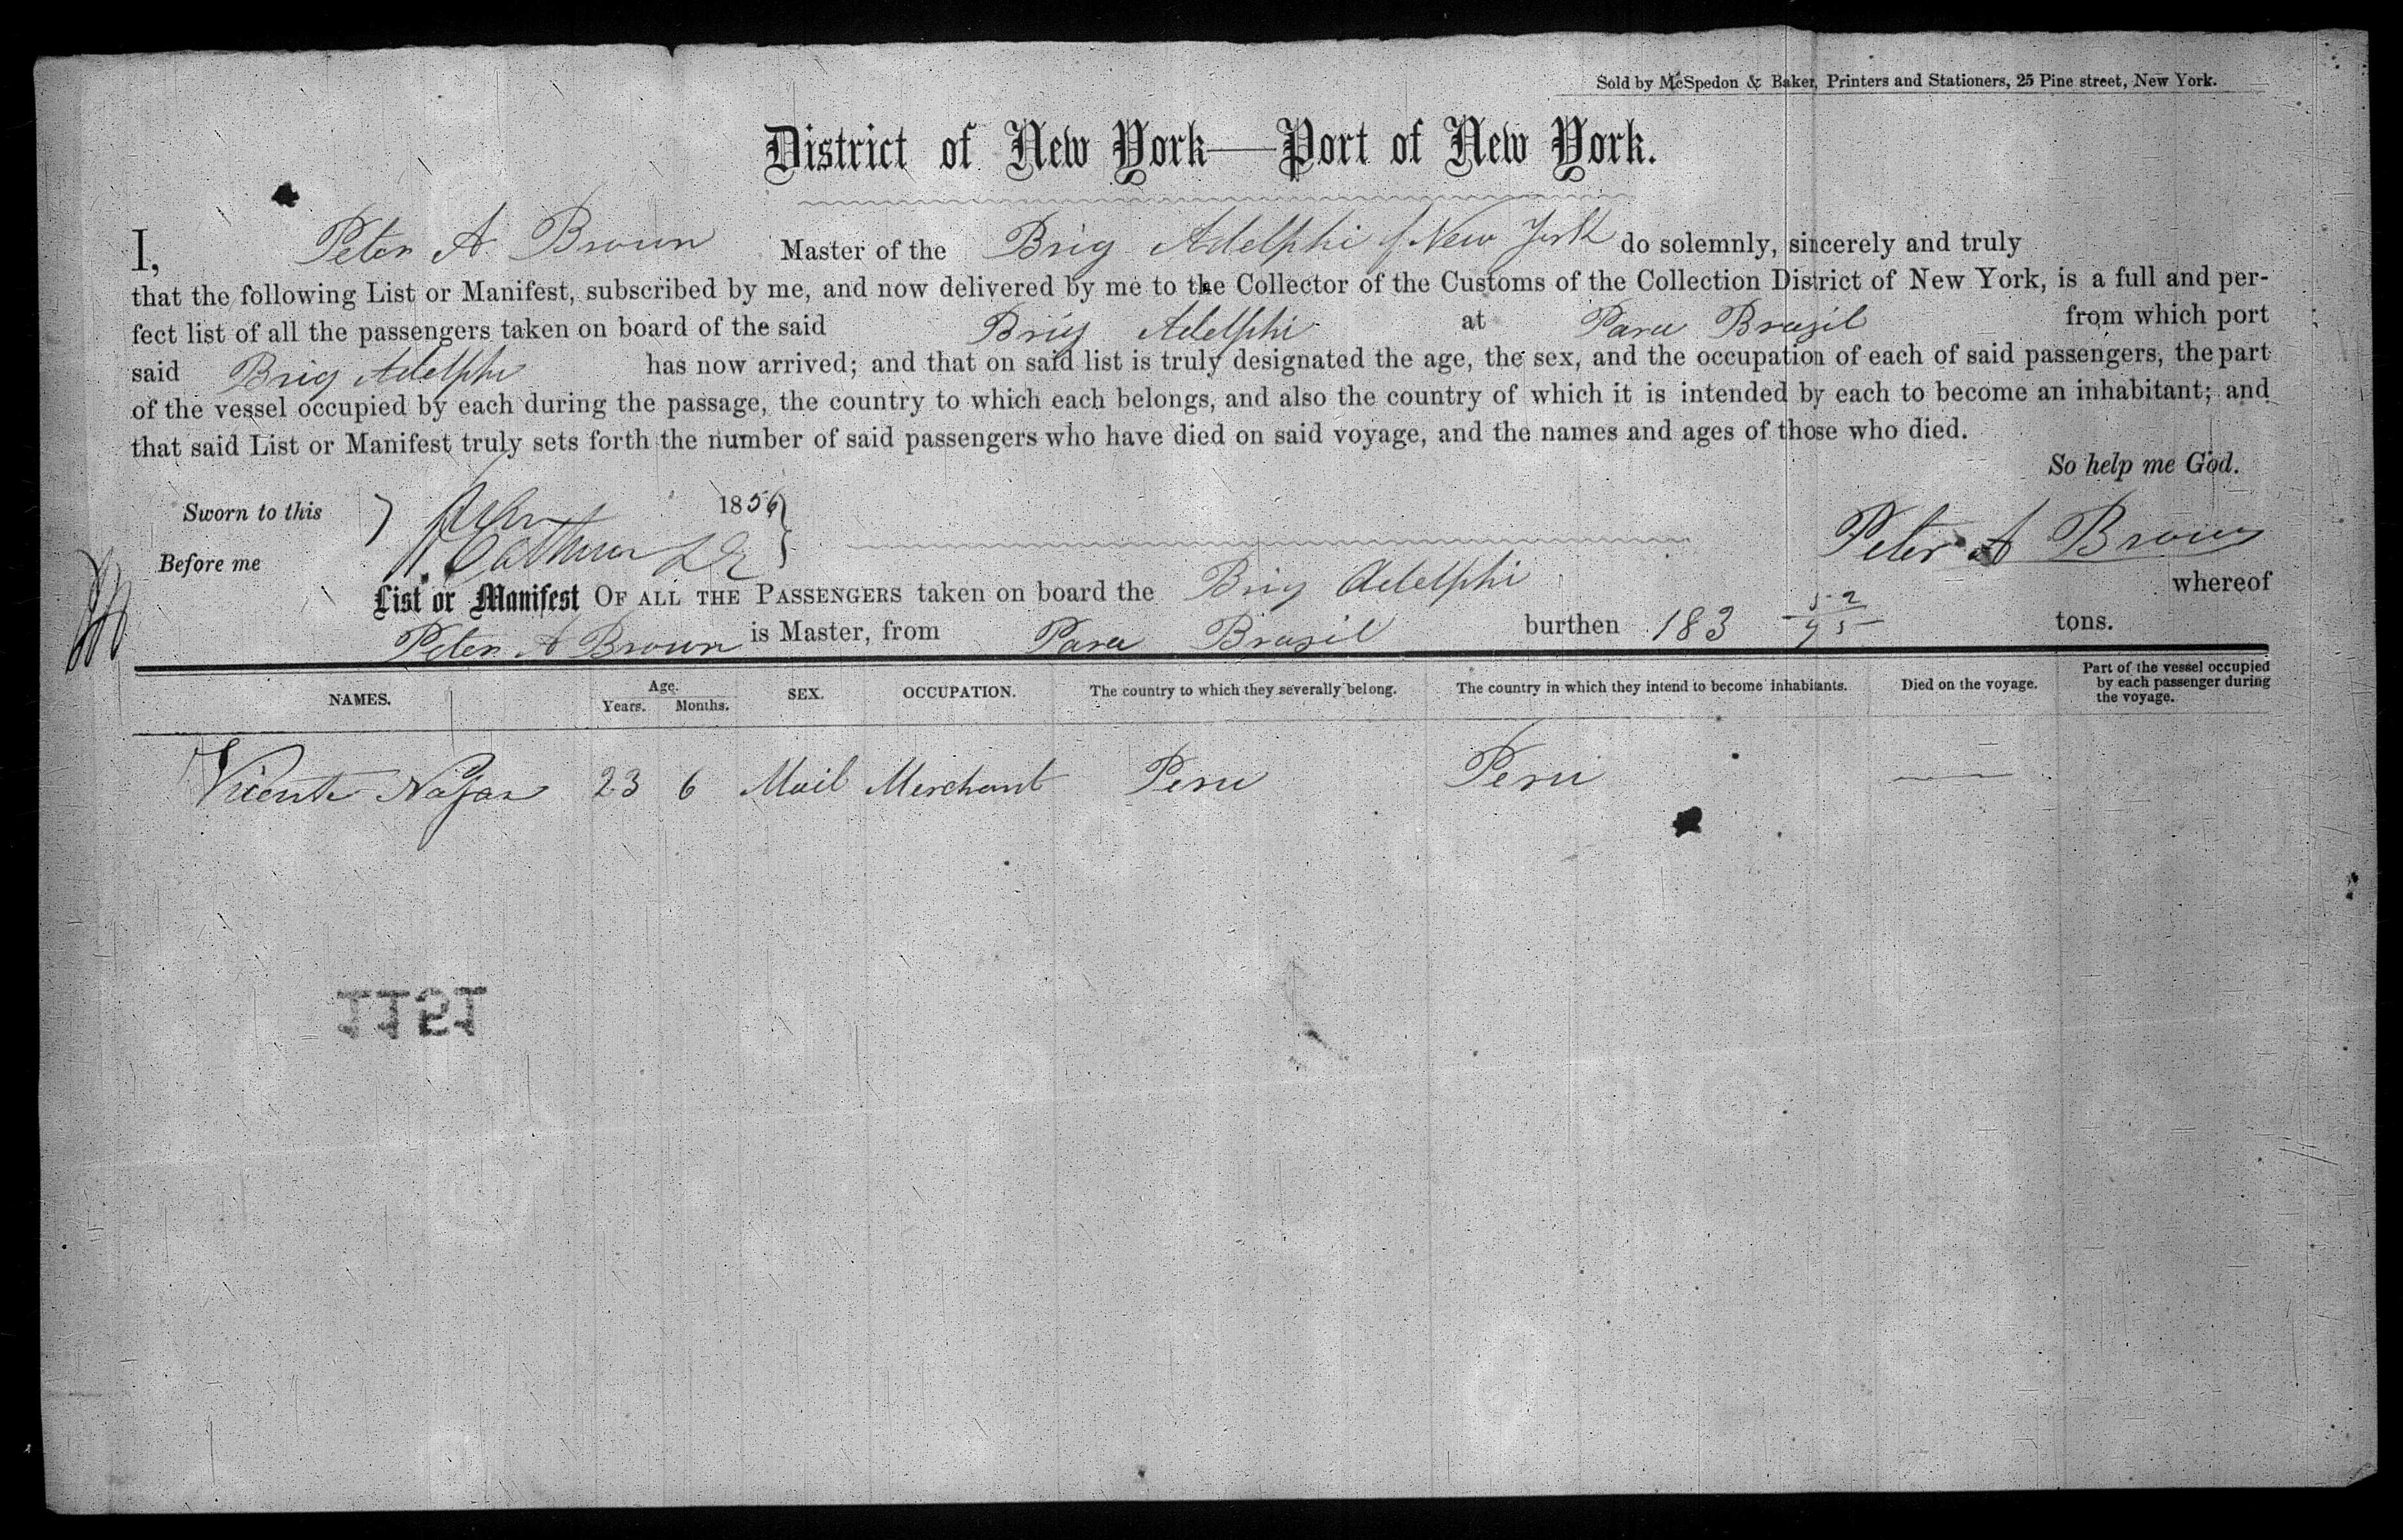 Sold by McSpedon & Baker, Printers and Stationers, 25 Pine street, New York.
District of New York—Port of New York.
I, Peter A Brown Master of the Brig Adelphi of New York do solemnly, sincerely and truly
that the following List or Manifest, subscribed by me, and now delivered by me to the Collector of the Customs of the Collection District of New York, is a full and per-
fect list of all the passengers taken on board of the said Brig Adelphi at Para Brazil from which port
said Brig Adelphi has now arrived; and that on said list is truly designated the age, the sex, and the occupation of each of said passengers, the part
of the vessel occupied by each during the passage, the country to which each belongs, and also the country of which it is intended by each to become an inhabitant; and
that said List or Manifest truly sets forth the number of said passengers who have died on said voyage, and the names and ages of those who died.
So help me God.
Sworn to this 1856
Before me
Peter A Brown
List or Manifest OF ALL THE PASSENGERS taken on board the Brig Adelphi whereof
Peter A Brown is Master, from Para Brazil burthen 183 52/95 tons.
NAMES. Age. Years. Months. SEX. OCCUPATION. The country to which they severally belong. The country in which they intend to become inhabitants. Died on the voyage. Part of the vessel occupied by each passenger during the voyage.
Vicente Najar 23 6 Mail Merchant Peru Peru —